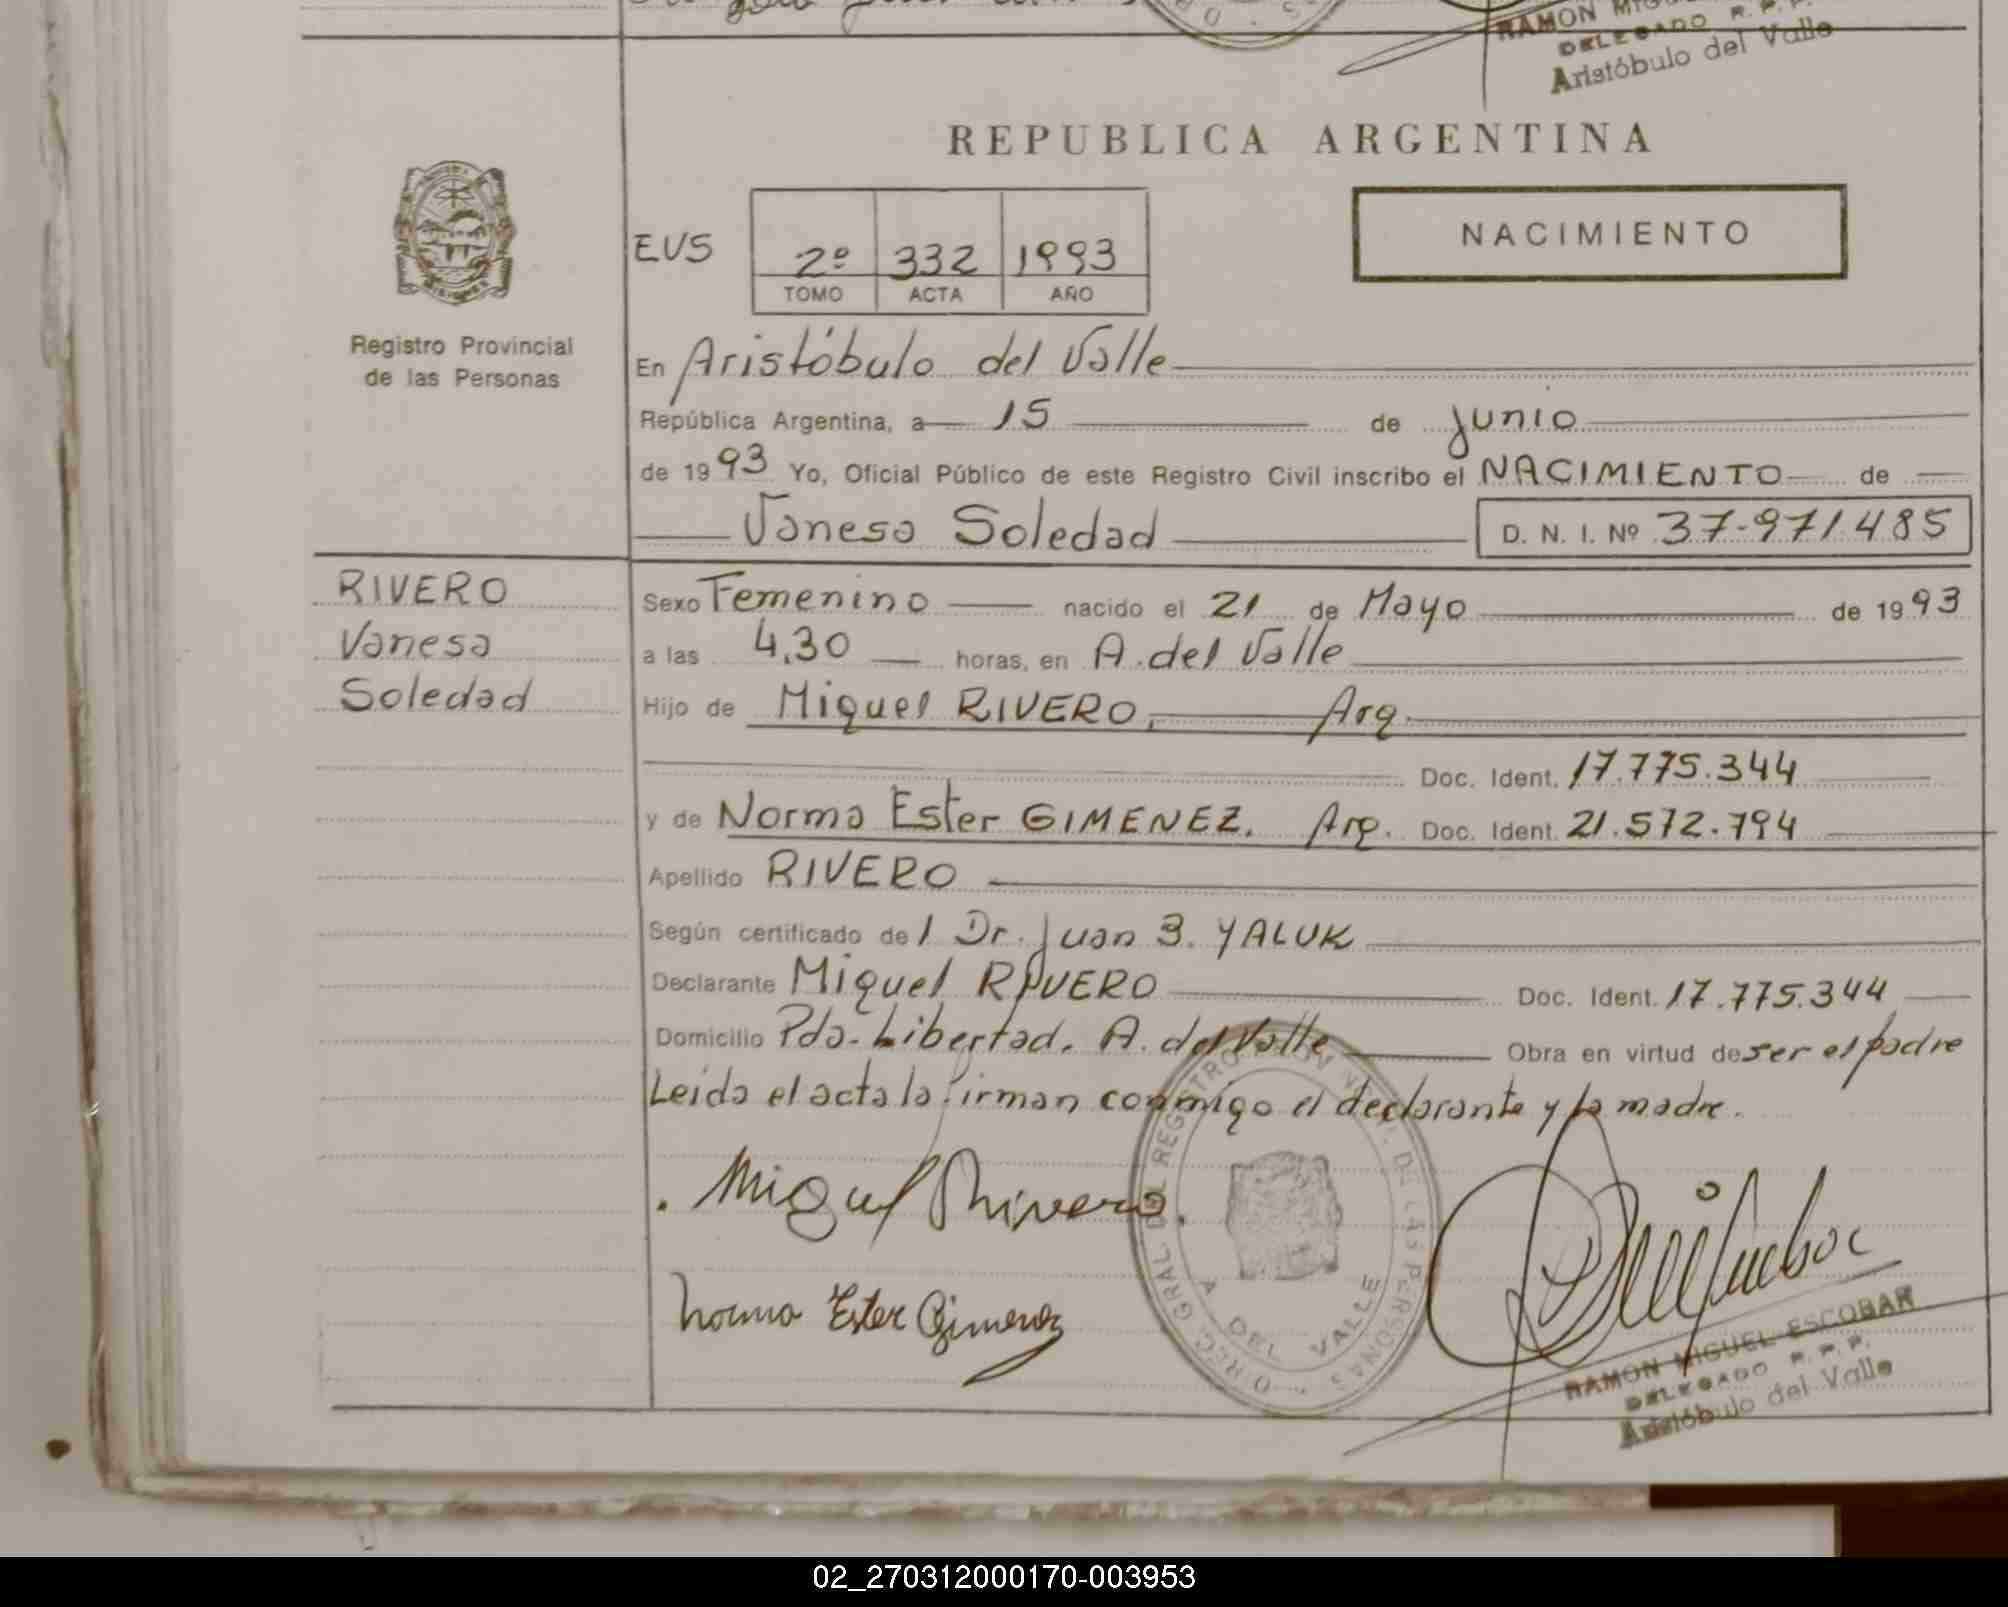 RAMON MIG
DELEGADO R. P. P.
Aristóbulo del Valle
REPUBLICA ARGENTINA
NACIMIENTO
EVS
2º 332 1993
TOMO ACTA AÑO
Registro Provincial
de las Personas
En Aristóbulo del Valle
República Argentina, a 15 de junio
de 1993 Yo, Oficial Público de este Registro Civil inscribo el NACIMIENTO de
Vanesa Soledad D. N. I. Nº 37-971.485
RIVERO
Vanesa
Soledad
Sexo Femenino nacido el 21 de Mayo de 1993
a las 4.30 horas, en A. del Valle
Hijo de Miguel RIVERO, Arg.
Doc. Ident. 17.775.344
y de Norma Ester GIMENEZ. Arg. Doc. Ident. 21.572.794
Apellido RIVERO
Según certificado del Dr. Juan B. YALUK
Declarante Miguel RIVERO Doc. Ident. 17.775.344
Domicilio Pda. Libertad. A. del Valle Obra en virtud de ser el padre
Leida el acta la firman conmigo el declarante y la madre.
Miguel Rivero.
Norma Ester Gimenez
DIREC. GRAL DEL REGISTRO DE LAS PERSONAS
A. DEL VALLE
RAMON MIGUEL ESCOBAR
DELEGADO R. P. P.
Aristóbulo del Valle
02_270312000170-003953